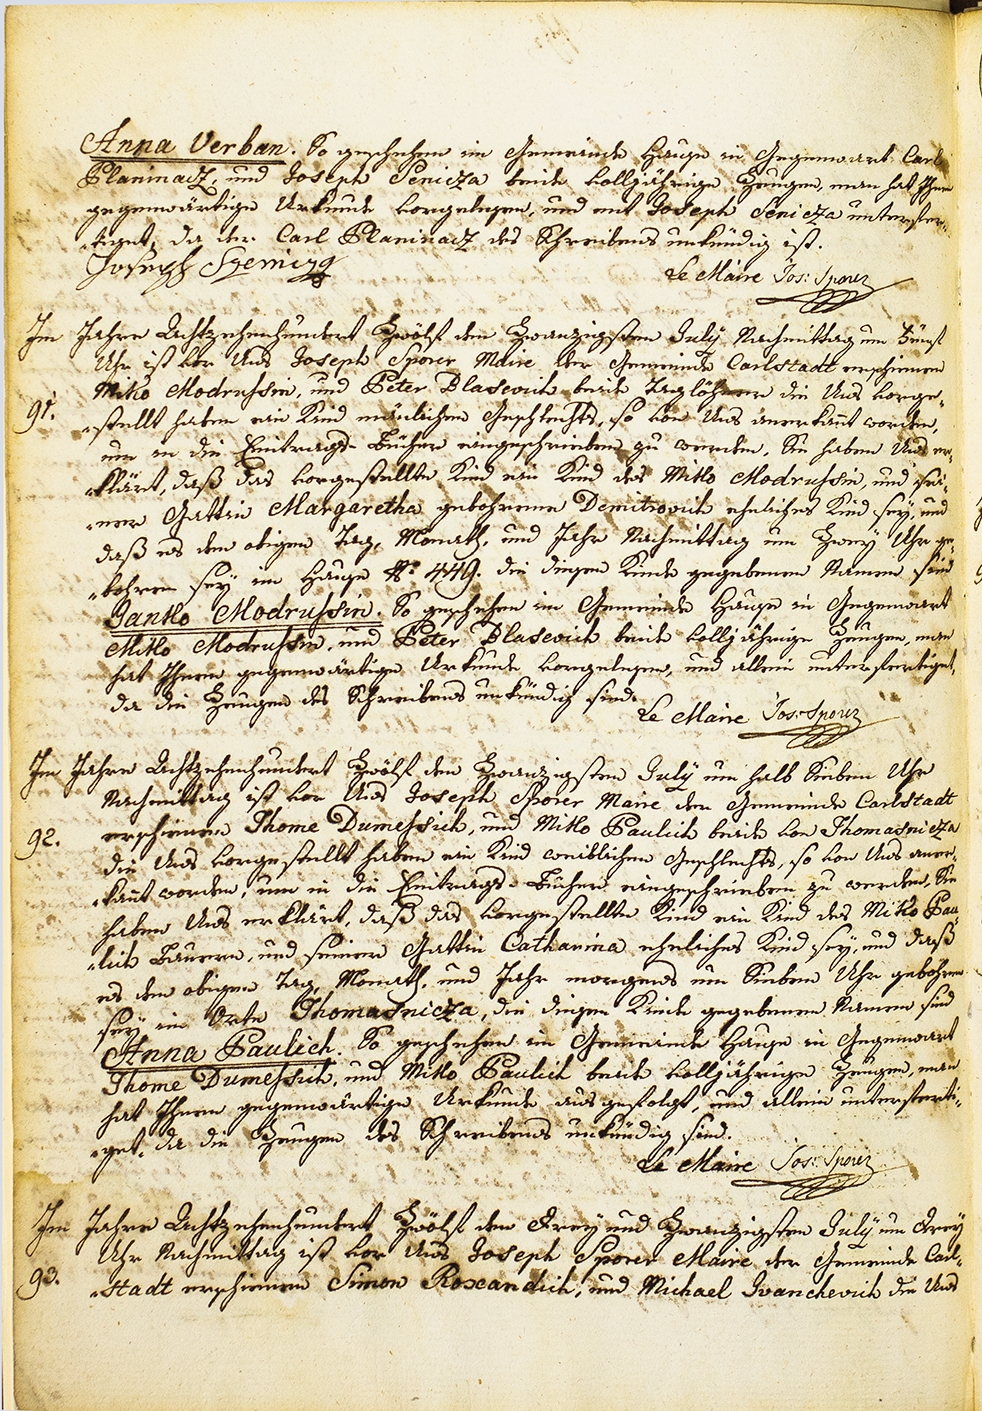 Anna Verban. So geschehen im Gemeinde Hause in Gegenwart Carl
Planinacz, und Joseph Senicza beide volljährige Zeugen, man hat Ihnen
gegenwärtige Urkunde vorgelesen, und mit Joseph Senicza unterfer-
tiget, da der Carl Planinacz des Schreibens unkündig ist.
Joseph Szeniczy
Le Maire Jos: Sporer
Im Jahre Achtzehenhundert Zwölf den Zwanzigsten July Nachmittag um Fünf
Uhr ist vor Uns Joseph Sporer Maire der Gemeinde Carlstadt erschienen
Mitto Modrussin, und Peter Blasevich beide Taglöhner die Uns vorge-
91.
stellt haben ein Kind mänlichen Geschlechts, so von Uns anerkañt worden,
um in die Eintrags-Bücher eingeschrieben zu werden, Sie haben Uns er-
klärt, daß das vorgestellte Kind ein Kind des Mitto Modrussin, und sei-
ner Gattin Margaretha gebohrene Demitrovich eheliches Kind sey, und
daß es den obigen Tag, Monath, und Jahr Nachmittag um Zwey Uhr ge-
bohren sey im Hause No 449. die diesen Kinde gegebenen Namen sind
Jantto Modrussin. So geschehen im Gemeinde Hause in Gegenwart
Mitto Modrussin, und Peter Blasevich beide volljährige Zeugen, man
hat Ihnen gegenwärtige Urkunde vorgelesen, und allein unterfertiget,
da die Zeugen des Schreibens unkündig sind.
Le Maire Jos: Sporer
Im Jahre Achtzehenhundert Zwölf den Zwanzigsten July um halb Sieben Uhr
Nachmittag ist vor Uns Joseph Sporer Maire der Gemeinde Carlstadt
92.
erschienen Thome Dumessich, und Mitto Paulich beide von Thomasnicza
die Uns vorgestellt haben ein Kind weiblichen Geschlechts, so von Uns aner-
kañt worden, um in die Eintrags-Bücher eingeschrieben zu werden, Sie
haben Uns erklärt, daß das vorgestellte Kind ein Kind des Mitto Pau-
lich Bauern, und seiner Gattin Catharina eheliches Kind sey, und daß
es den obigen Tag, Monath, und Jahr morgens um Sieben Uhr gebohren
sey im Orte Thomasnicza, die diesen Kinde gegebenen Namen sind
Anna Paulich. So geschehen im Gemeinde Hause in Gegenwart
Thome Dumessich, und Mitto Paulich beide volljährige Zeugen, man
hat Ihnen gegenwärtige Urkunde ausgefolgt, und allein unterferti-
get, da die Zeugen des Schreibens unkündig sind.
Le Maire Jos: Sporer
Im Jahre Achtzehenhundert Zwölf den Drey und Zwanzigsten July um Drey
Uhr Nachmittag ist vor Uns Joseph Sporer Maire der Gemeinde Carl-
93.
stadt erschienen Simon Roxandich, und Michael Ivanchevich die Uns